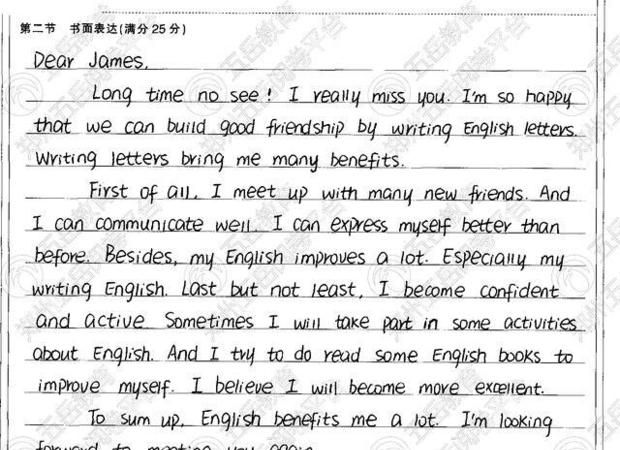 第二节 书面表达(满分25分)
Dear James,
Long time no see! I really miss you. I'm so happy
that we can build good friendship by writing English letters.
Writing letters bring me many benefits.
First of all, I meet up with many new friends. And
I can communicate well. I can express myself better than
before. Besides, my English improves a lot. Especially my
writing English. Last but not least, I become confident
and active. Sometimes I will take part in some activities
about English. And I try to do read some English books to
improve myself. I believe I will become more excellent.
To sum up, English benefits me a lot. I'm looking
forward to meeting you again.